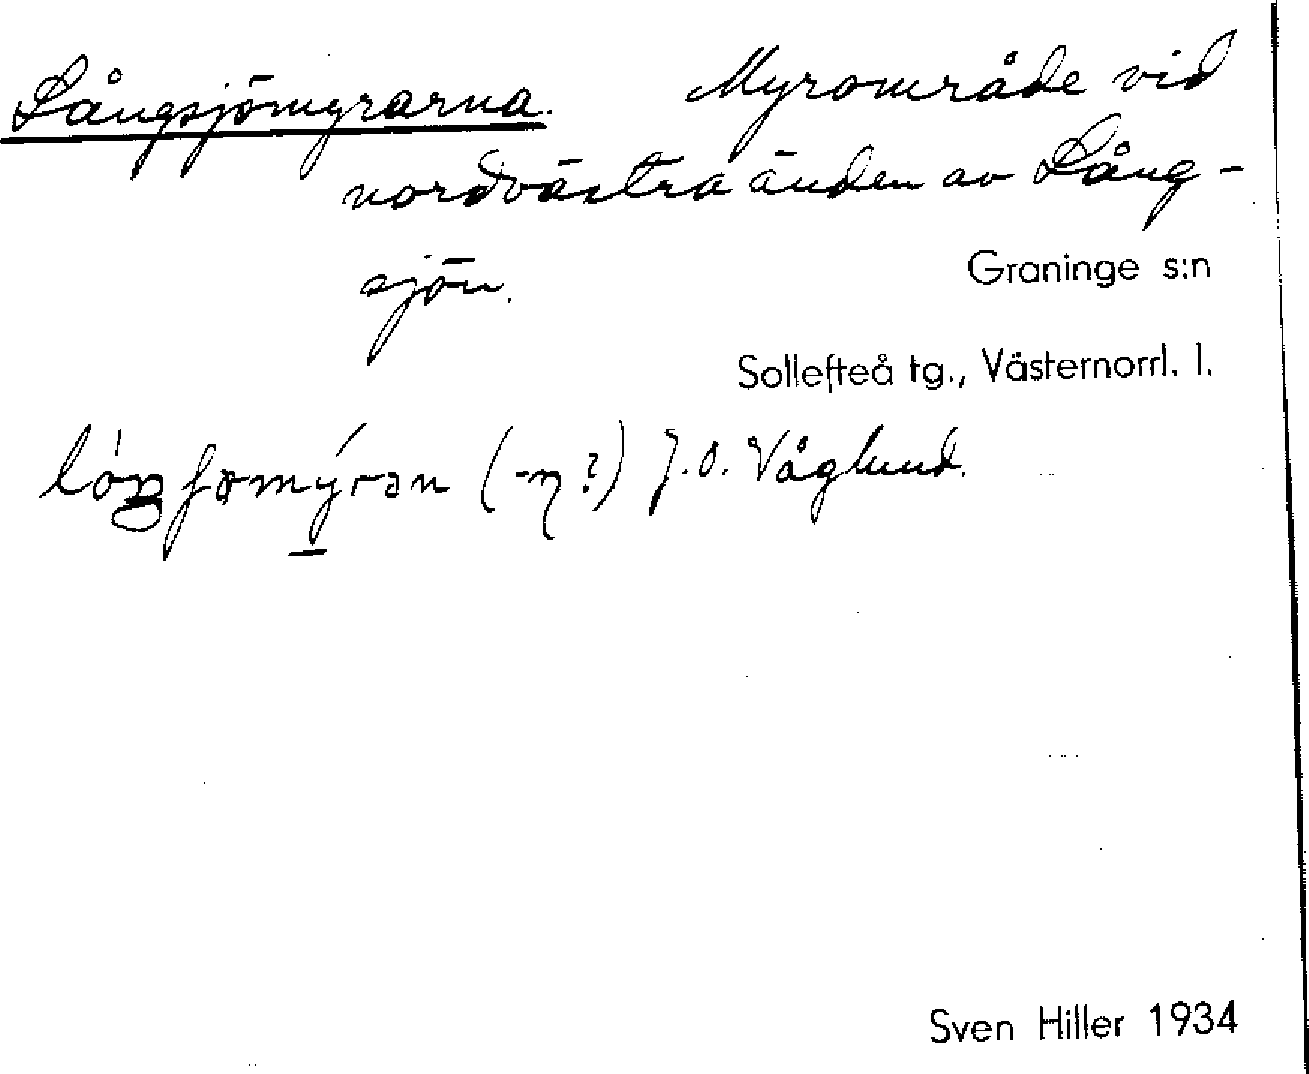 Långsjömyrarna. Myrområde vid
nordvästra änden av Lång-
sjön.
Graninge s:n
Sollefteå tg., Västernorrl. l.
(-η?) J.O. Våglund.
Sven Hiller 1934